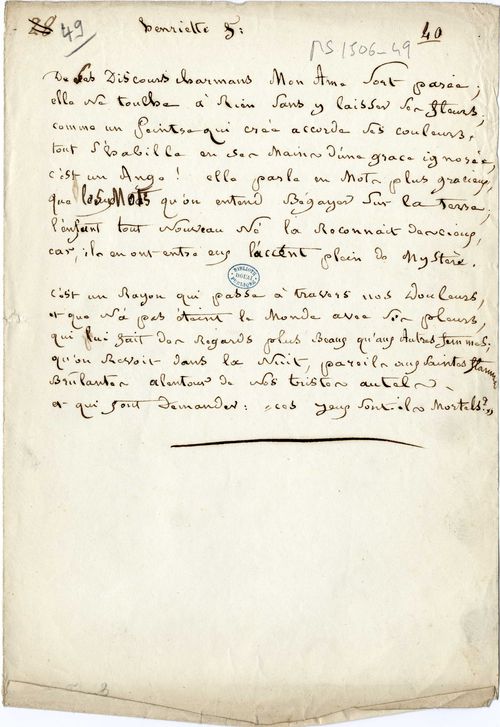 28 49 henriette f: 40
MS 1506-49
De ses Discours charmans Mon Ame sort parée;
elle Ne touche à Rien sans y laisser ses fleurs,
comme un Peintre qui crée accorde ses couleurs,
tout s'habille en ses Mains d'une grace ignorée,
c'est un Ange! elle parle en Mots plus gracieux
que les Mots qu'on entend Bégayer sur la terre,
l'enfant tout Nouveau Né la Reconnait des cieux,
car, ils en ont entre eux l'accent plein de Mystère.
BIBLIOTH DOUAI PUBLIQUE
c'est un Rayon qui passe à travers nos Douleurs,
et que N'a pas éteint le Monde avec ses pleurs,
qui lui fait des Regards plus Beaux qu'aux Autres femmes;
qu'on Revoit dans la Nuit, pareils aux Saintes flammes
Brûlantes alentour de Nos tristes autels
et qui font Demander: «ces yeux sont-ils Mortels?»